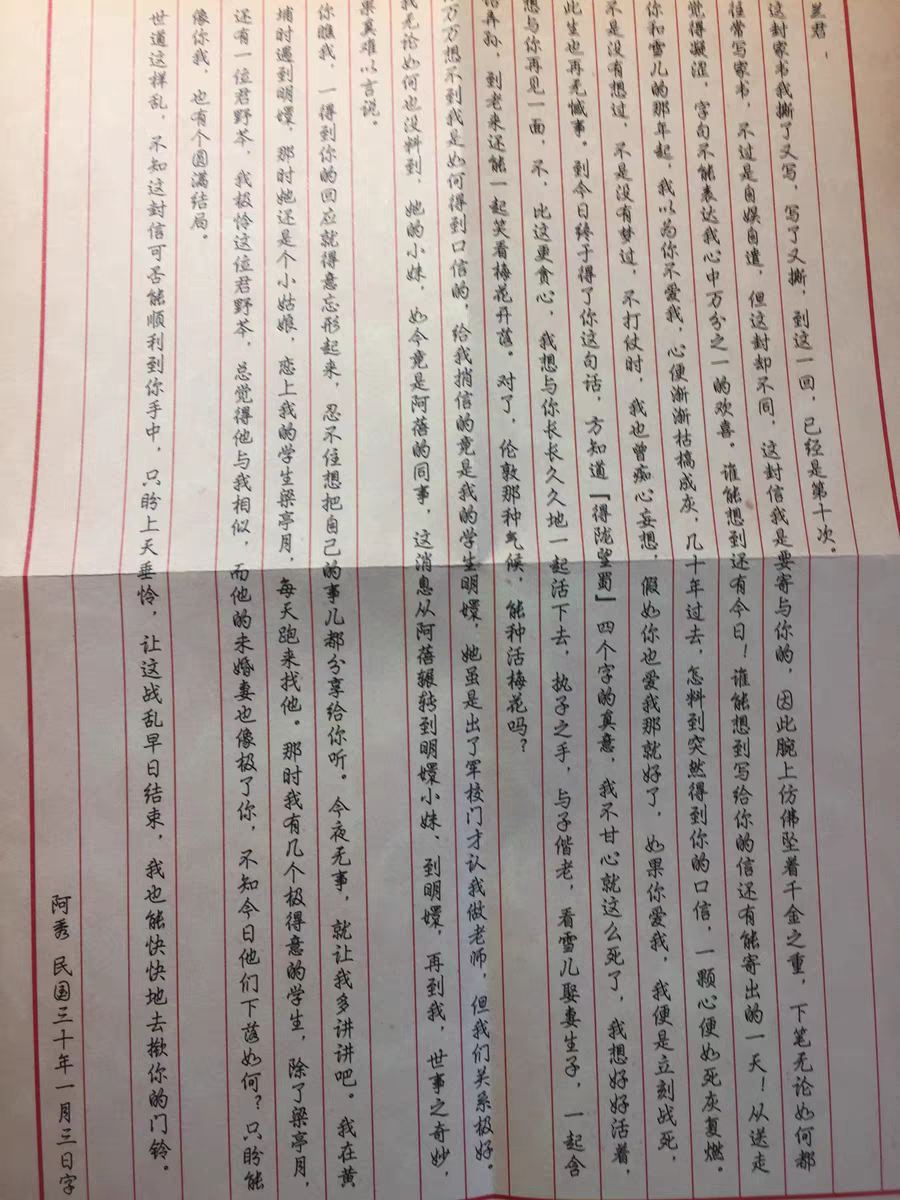 兰君，
这封家书我撕了又写，写了又撕，到这一回，已经是第十次。
往常写家书，不过是自娱自遣，但这封却不同，这封信我是要寄与你的，因此腕上仿佛坠着千金之重，下笔无论如何都
觉得凝涩，字句不能表达我心中万分之一的欢喜。谁能想到还有今日！谁能想到写给你的信还有能寄出的一天！从送走
你和雪儿的那年起，我以为你不爱我，心便渐渐枯槁成灰，几十年过去，怎料到突然得到你的口信，一颗心便如死灰复燃。
不是没有想过，不是没有梦过，不打仗时，我也曾痴心妄想，假如你也爱我那就好了，如果你爱我，我便是立刻战死，
此生也再无憾事。到今日终于得了你这句话，方知道『得陇望蜀』四个字的真意，我不甘心就这么死了，我想好好活着，
想与你再见一面，不，比这更贪心，我想与你长长久久地一起活下去，执子之手，与子偕老，看雪儿娶妻生子，一起含
饴弄孙，到老来还能一起笑看梅花开落。对了，伦敦那种气候，能种活梅花吗？
万万想不到我是如何得到口信的，给我捎信的竟是我的学生明嬛，她虽是出了军校门才认我做老师，但我们关系极好。
我无论如何也没料到，她的小妹，如今竟是阿蓓的同事，这消息从阿蓓辗转到明嬛小妹、到明嬛，再到我，世事之奇妙，
果真难以言说。
你瞧我，一得到你的回应就得意忘形起来，忍不住想把自己的事儿都分享给你听。今夜无事，就让我多讲讲吧。我在黄
埔时遇到明嬛，那时她还是个小姑娘，恋上我的学生梁亭月，每天跑来找他。那时我有几个极得意的学生，除了梁亭月，
还有一位君野苓，我极怜这位君野苓，总觉得他与我相似，而他的未婚妻也像极了你，不知今日他们下落如何？只盼能
像你我，也有个圆满结局。
世道这样乱，不知这封信可否能顺利到你手中，只盼上天垂怜，让这战乱早日结束，我也能快快地去揿你的门铃。
阿秀 民国三十年一月三日字